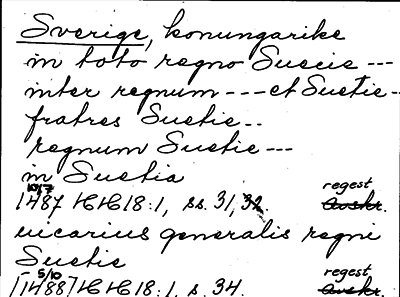 Sverige, konungarike
in toto regno Suecie ---
inter regnum --- et Suetie -
fratres Suetie ..
regnum Suetie ---
in Suetia
10/7
1487 HH 18:1, ss. 31, 32. regest
avskr.
uicarius generalis regni
Suetie
5/10
[1488] HH 18:1, s. 34. regest
avskr.